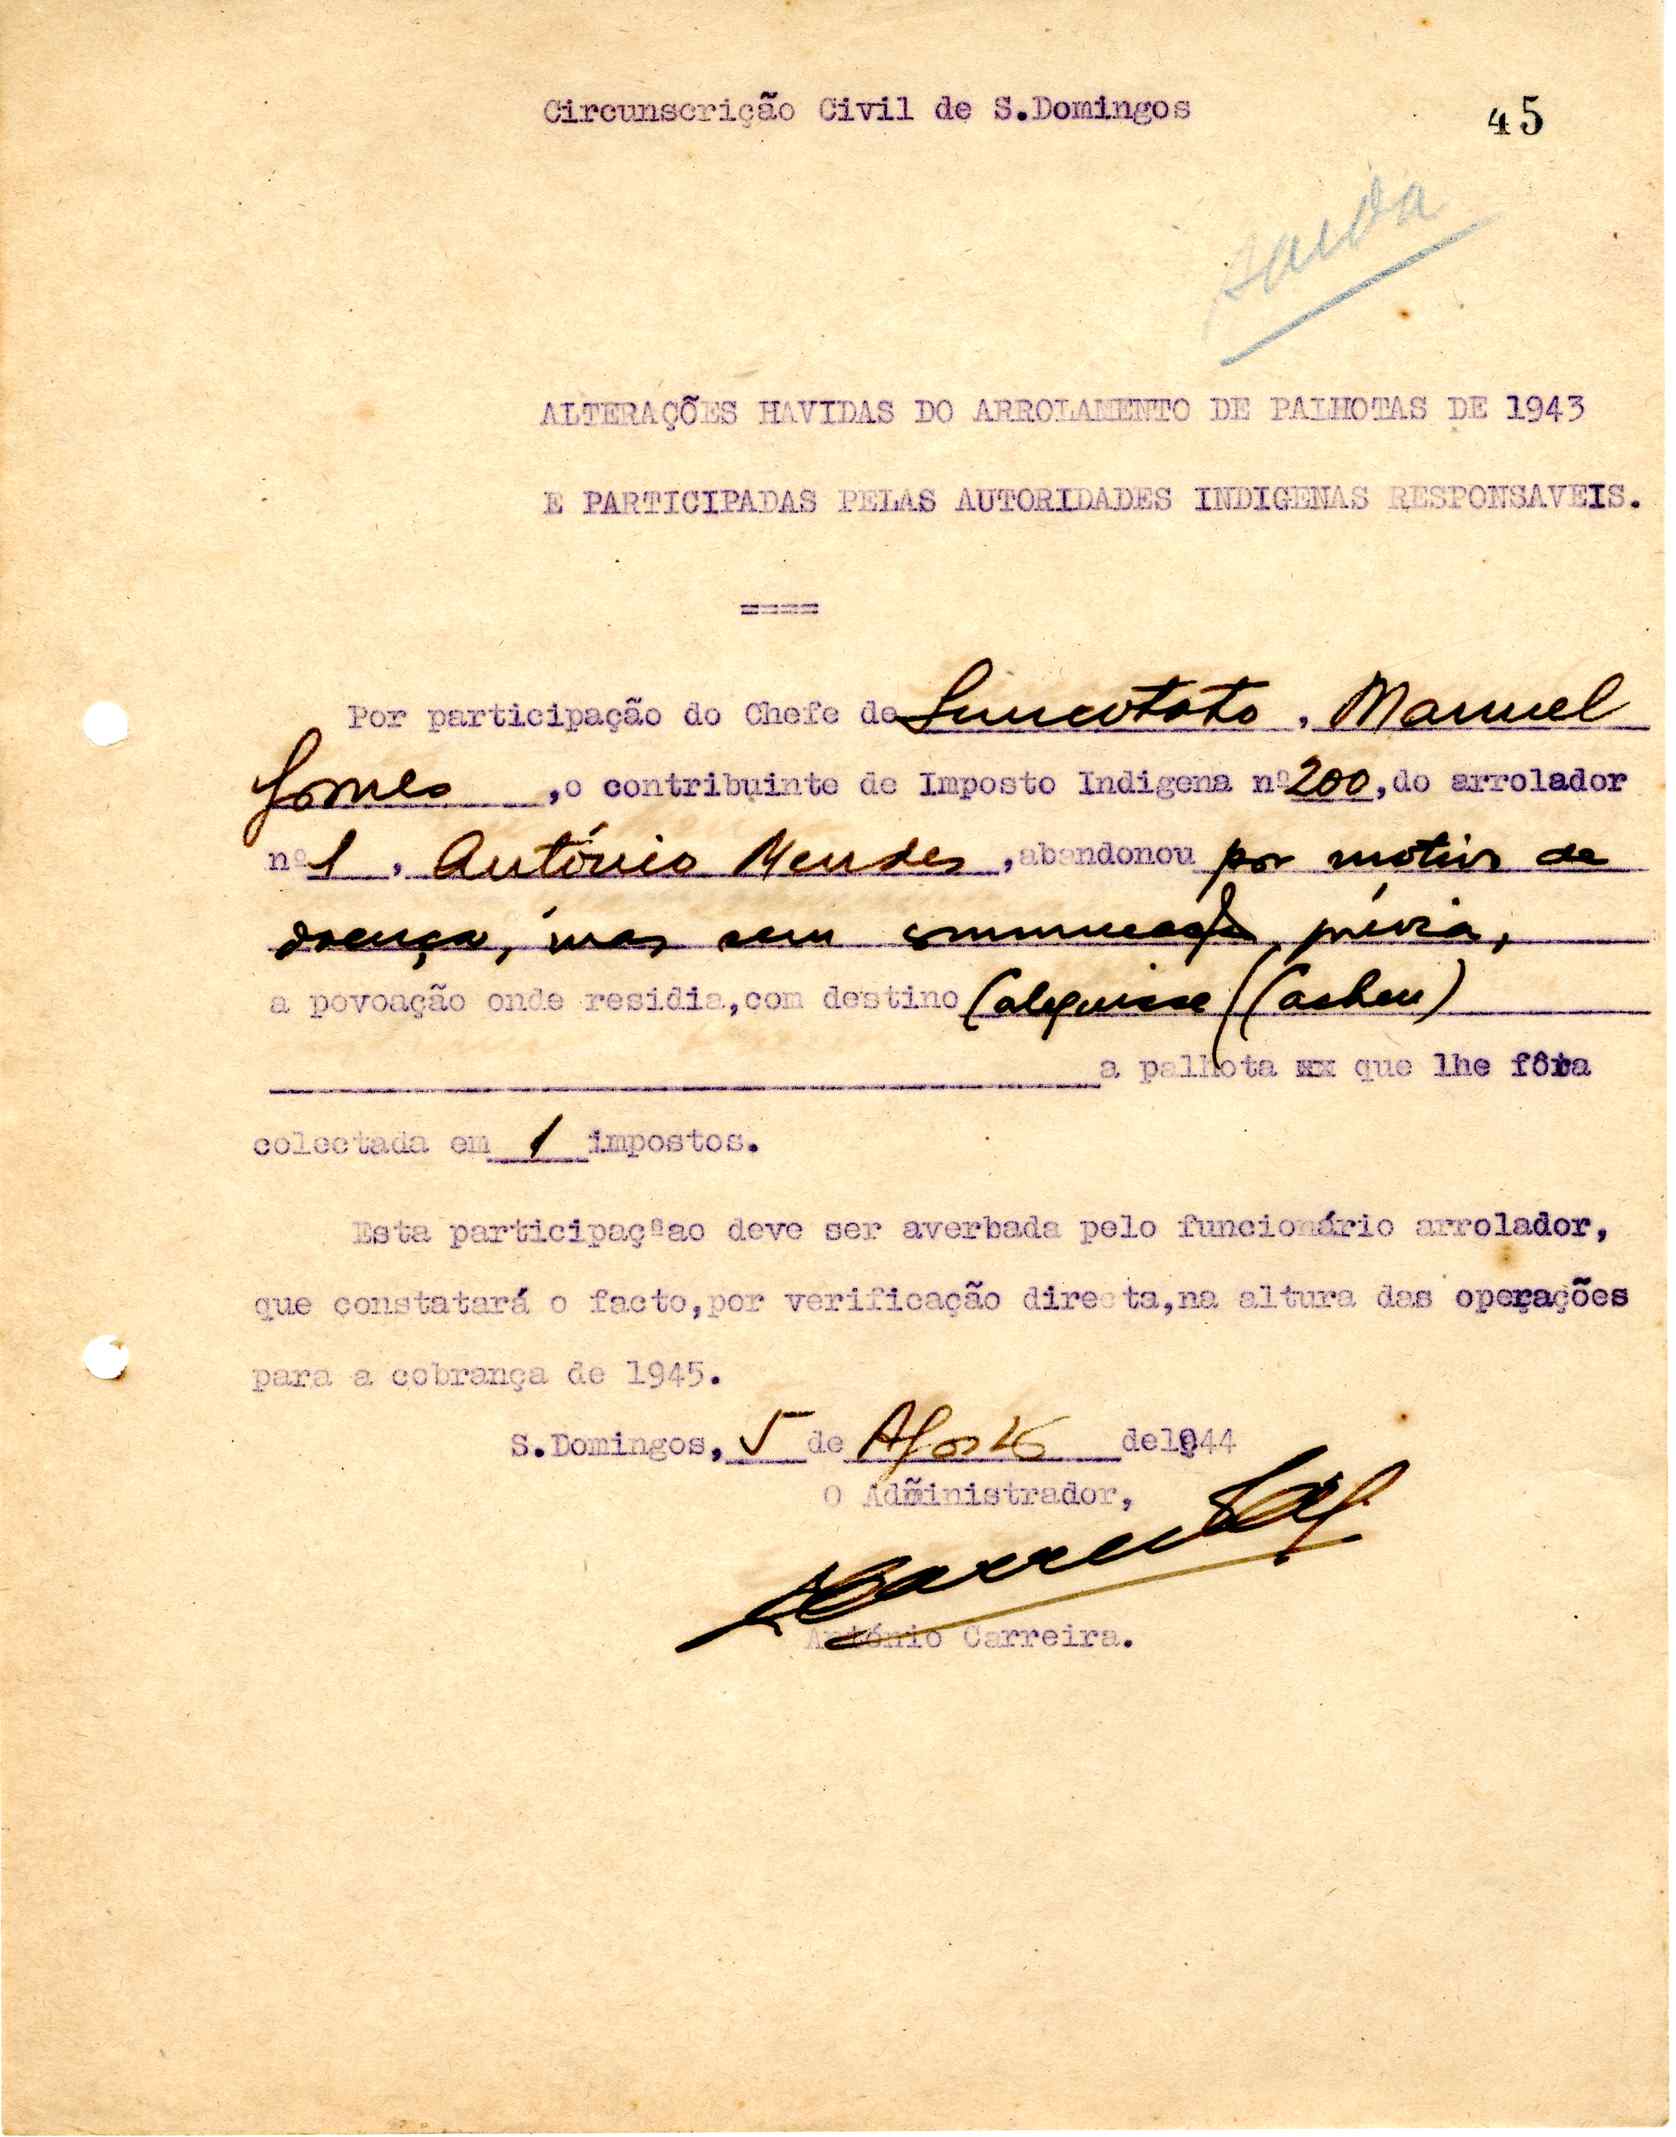 Circunscrição Civil de S.Domingos
45
saida
ALTERAÇÕES HAVIDAS DO ARROLAMENTO DE PALHOTAS DE 1943
E PARTICIPADAS PELAS AUTORIDADES INDIGENAS RESPONSAVEIS.
====
Por participação do Chefe de , Manuel
Gomes ,o contribuinte de Imposto Indigena nº 200,do arrolador
nº 1 , António Mendes ,abandonou por motivo de
doença, mas sem comunicação prévia,
a povoação onde residia,com destino Calequisse (Cacheu)
a palhota xx que lhe fôra
colectada em 1 impostos.
Esta participaçªao deve ser averbada pelo funcionário arrolador,
que constatará o facto,por verificação directa,na altura das operações
para a cobrança de 1945.
S.Domingos, 5 de Agosto de1944
O Administrador,
ACarreira
António Carreira.